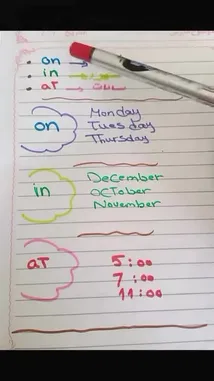 on →
in →
at →
on
Monday
Tuesday
Thursday
in
December
OCTober
November
at
5:00
7:00
11:00